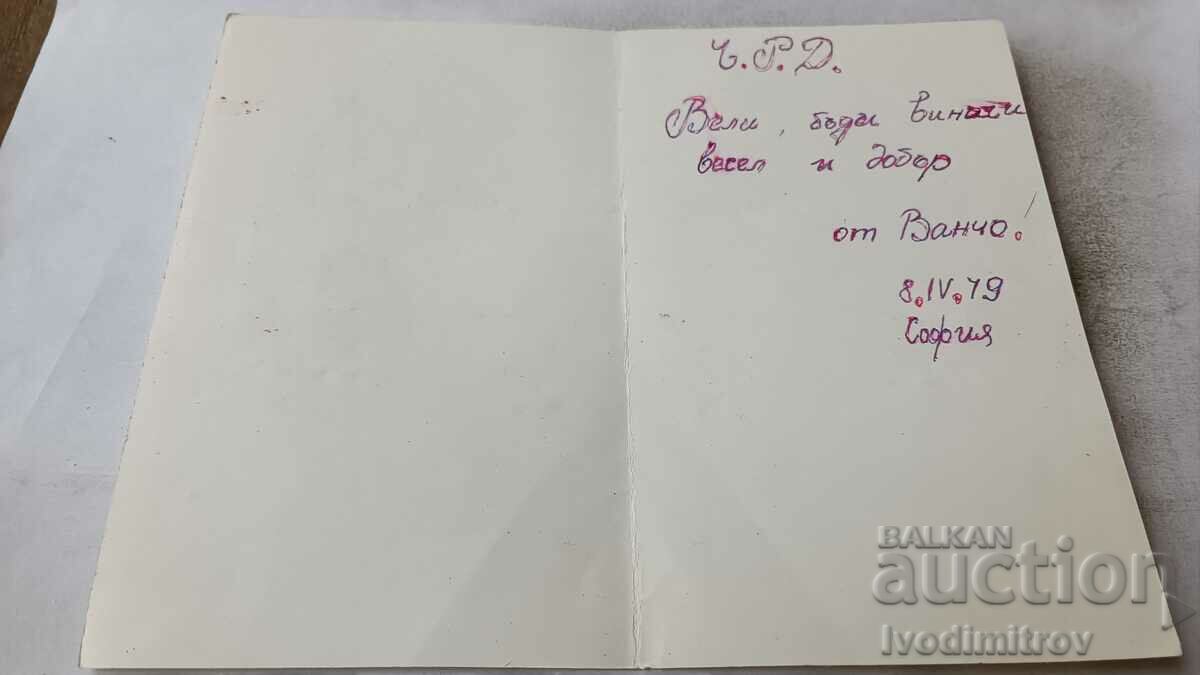 Ч.Р.Д.
Вели, бъди винаги
весел и добър
от Ванчо!
8.IV.79
София
BALKAN
auction
Ivodimitrov